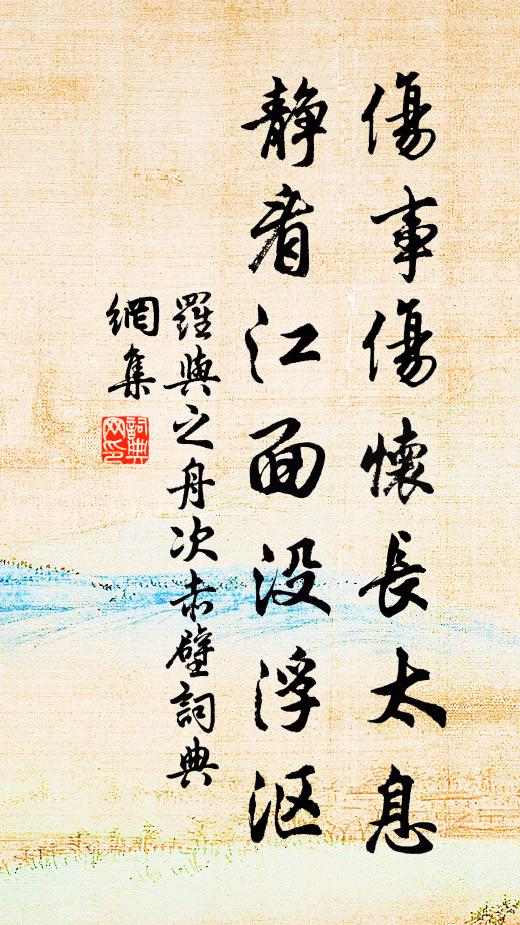 傷事傷懷長太息
静看江面没浮沤
羅與之舟次赤壁詞典
網集
詞典
网印